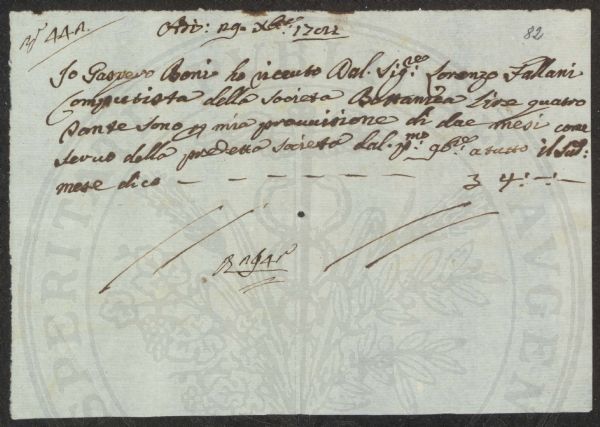 Adì: 29 Xbre: 1784
82
Io Gaspero Boni ho riceuto Dal Sigre Lorenzo Fallani
Computista della Società Bottanica Lire quattro
Sonte Sono p mia provvisione di due mesi come
Servo della predetta Società dal pmo 9bre a tutto il Sud:
mese dico — — — — — — — 3 4: -: -